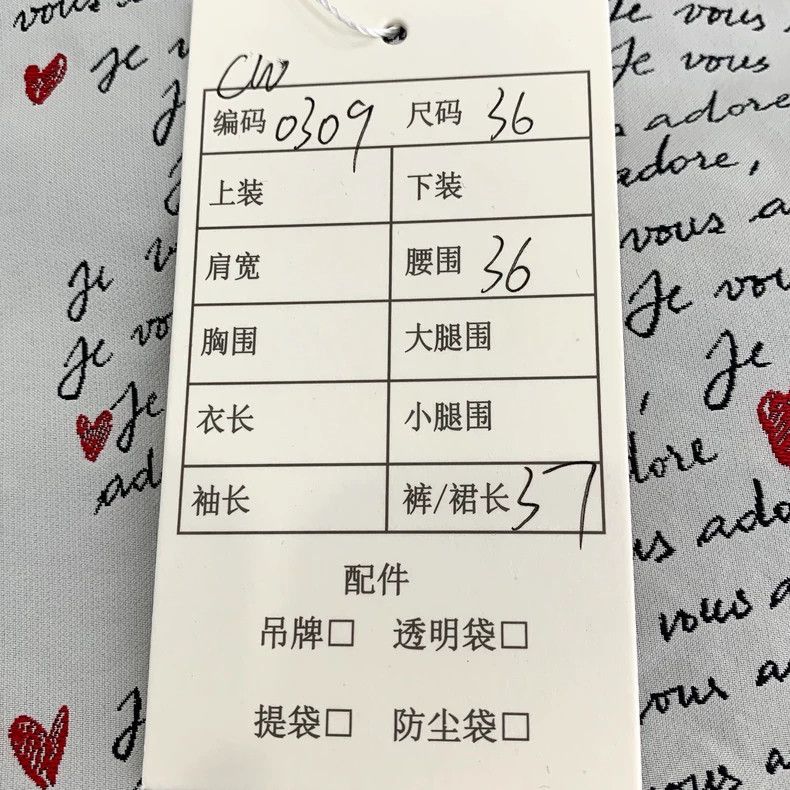 CW
编码 0309 尺码 36
上装 下装
肩宽 腰围 36
胸围 大腿围
衣长 小腿围
袖长 裤/裙长 37
配件
吊牌□ 透明袋□
提袋□ 防尘袋□
vous
Je
Je
Je vo
Je
ad
Je
Je vous
Je vous
adore
adore,
vous a
Je vou
Je
lore
us ado
vous a
vous a